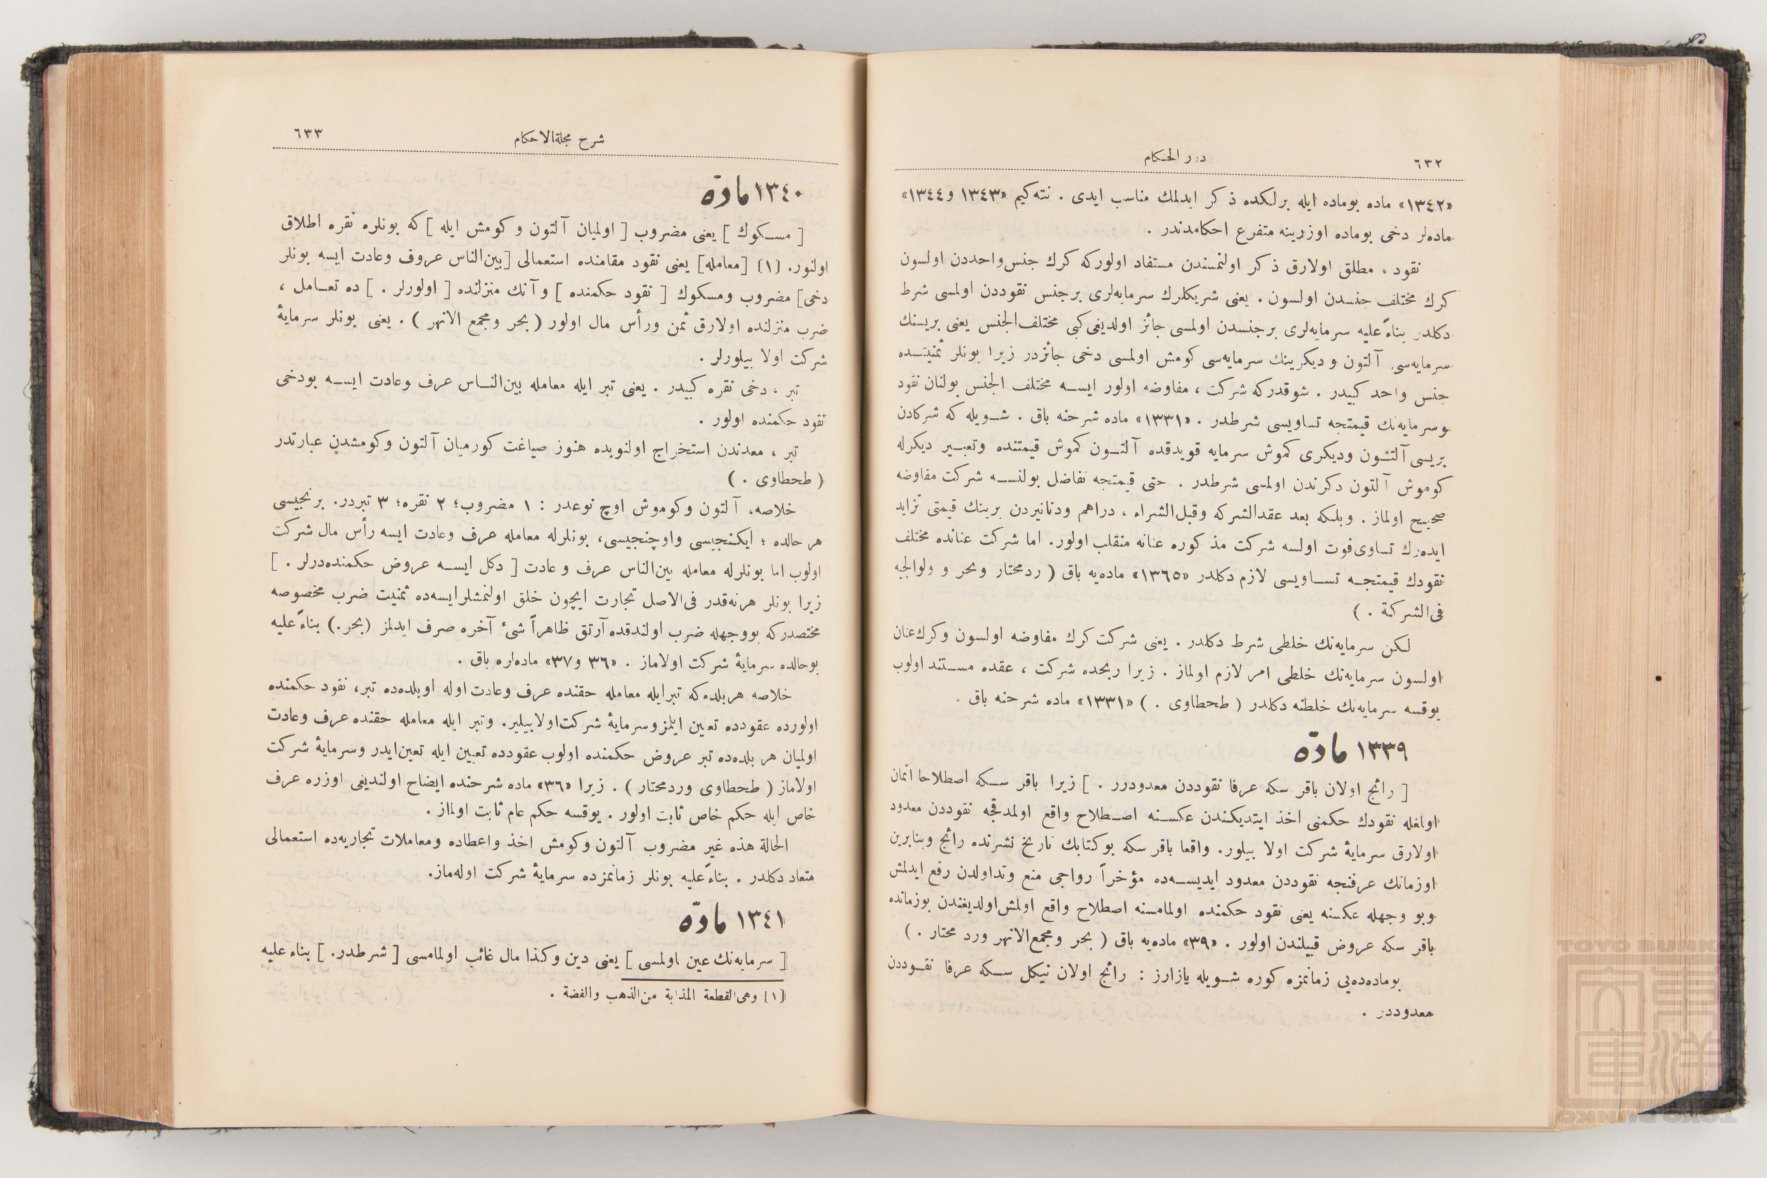 ٦٣٢
درر الحكام
«١٣٤٢» ماده بوماده ايله برلكده ذكر ايدلمك مناسب ايدى . نته‌كيم «١٣٤٣ و١٣٤٤»
ماده‌لر دخى بوماده اوزرينه متفرع احكامدندر .
نقود ، مطلق اولارق ذكر اولنمسندن مستفاد اولوركه كرك جنس‌واحددن اولسون
كرك مختلف جنسدن اولسون . يعنى شريكلرك سرمايه‌لرى برجنس نقوددن اولمسى شرط
دكلدر بناءً عليه سرمايه‌لرى برجنسدن اولمسى جائز اولديغى‌كبى مختلف‌الجنس يعنى بريسنك
سرمايه‌سى آلتون و ديكرينك سرمايه‌سى كومش اولمسى دخى جائزدر زيرا بونلر ثمنيتــده
جنس واحد كبيدر . شوقدركه شركت ، مفاوضه اولور ايســه مختلف الجنس بولنان نقود
وسرمايه‌نك قيمتجه تساويسى شرطدر . «١٣٣١» ماده شرحنه باق . شــويله كه شركادن
بريسى آلتــون وديكرى كموش سرمايه قويدقده آلتــون كموش قيمتنده وتعبــير ديكرله
كوموش آلتون دكرندن اولمسى شرطدر . حتى قيمتجه تفاضل بولنســه شركت مفاوضه
صحيح اولماز . وبلكه بعد عقدالشركه وقبل‌الشراء ، دراهم ودنانيردن برينك قيمتى تزايد
ايده‌رك تساوى‌فوت اولسه شركت مذكوره عنانه منقلب اولور. اما شركت عنانده مختلف
نقودك قيمتجــه تســاويسى لازم دكلدر «١٣٦٥» ماده‌يه باق ( ردمحتار وبحر و ولوالجيه
فى‌الشركة . )
لكن سرمايه‌نك خلطى شرط دكلدر . يعنى شركت كرك مفاوضه اولسون وكرك‌عنان
اولسون سرمايه‌نك خلطى امر لازم اولماز . زيرا ربحده شركت ، عقده مســتند اولوب
يوقسه سرمايه‌نك خلطنه دكلدر ( طحطاوى . ) «١٣٣١» ماده شرحنه باق .
١٣٣٩ مادّه
[ رائج اولان باقر سكه عرفا نقوددن معدودرر . ] زيرا باقر ســكه اصطلاحا اثمان
اولغله نقودك حكمنى اخذ ايتديكندن عكســنه اصــطلاح واقع اولمدقجه نقوددن معدود
اولارق سرمايهٔ شركت اولا بيلور. واقعا باقر سكه بوكتابك تاريخ نشرنده رائج وبنابرين
اوزمانك عرفنجه نقوددن معدود ايديســه‌ده مؤخراً رواجى منع وتداولدن رفع ايدلمش
وبو وجهله عكسنه يعنى نقود حكمنده اولمامسنه اصطلاح واقع اولمش‌اولديغندن بوزمانده
باقر سكه عروض قبيلندن اولور . «٣٩» ماده‌يه باق ( بحر ومجمع‌الانهر ورد محتار . )
بوماده‌ده‌يى زمانمزه كوره شــويله يازارز : رائج اولان نيكل ســكه عرفا نقــوددن
معدوددر .
شرح مجلة‌الاحكام
٦٣٣
١٣٤٠ مادّه
[ مســكوك ] يعنى مضروب [ اولميان آلتون و كومش ايله ] كه بونلره نقره اطلاق
اولنور. [١] [معامله] يعنى نقود مقامنده استعمالى [بين‌الناس عروف وعادت ايسه بونلر
دخى] مضروب ومسكوك [ نقود حكمنده ] وآنك منزلنده [ اولورلر . ] ده تعــامل ،
ضرب منزلنده اولارق ثمن ورأس مال اولور ( بحر ومجمع الانهر ) . يعنى بونلر سرمايهٔ
شركت اولا بيلورلر .
تبر ، دخى نقره كبيدر . يعنى تبر ايله معامله بين‌النــاس عرف وعادت ايســه بودخى
نقود حكمنده اولور .
تبر ، معدندن استخراج اولنوبده هنوز صياغت كورميان آلتون وكومشدن عبارتدر
( طحطاوى . )
خلاصه، آلتون وكوموش اوچ نوعدر : ١ مضروب؛ ٢ نقره؛ ٣ تبردر. برنجيسى
هر حالده ؛ ايكنجيسى واوچنجيسى، بونلرله معامله عرف وعادت ايسه رأس مال شركت
اولوب اما بونلرله معامله بين‌الناس عرف و عادت [ دكل ايســه عروض حكمنده‌درلر . ]
زيرا بونلر هرنه‌قدر فى‌الاصل تجارت ايچون خلق اولنمشلرايسه‌ده ثمنيت ضرب مخصوصه
مختصدركه بووجهله ضرب اولندقده آرتق ظاهراً شئ آخره صرف ايدلمز (بحر.) بناءً عليه
بوحالده سرمايهٔ شركت اولاماز . «٣٦ و٣٧» ماده‌لره باق .
خلاصه هربلده‌كه تبرايله معامله حقنده عرف وعادت اوله اوبلده‌ده تبر، نقود حكمنده
اولورده عقودده تعين ايلمز وسرمايهٔ شركت‌اولابيلير. وتبر ايله معامله حقنده عرف وعادت
اولميان هر بلده‌ده تبر عروض حكمنده اولوب عقودده تعيين ايله تعين‌ايدر وسرمايهٔ شركت
اولاماز ( طحطاوى وردمحتار ) . زيرا «٣٦» ماده شرحنده ايضاح اولنديغى اوزره عرف
خاص ايله حكم خاص ثابت اولور . يوقسه حكم عام ثابت اولماز .
الحالة هذه غير مضروب آلتون وكومش اخذ واعطاده ومعاملات تجاريه‌ده استعمالى
متعاد دكلدر . بناءً عليه بونلر زمانمزده سرمايهٔ شركت اوله‌ماز.
١٣٤١ مادّه
[ سرمايه‌نك عين اولمسى ] يعنى دين وكذا مال غائب اولمامسى [ شرطدر. ] بناء عليه
[١] وهى‌القطعة المذابة من‌الذهب والفضة .
TOYO BUNKO